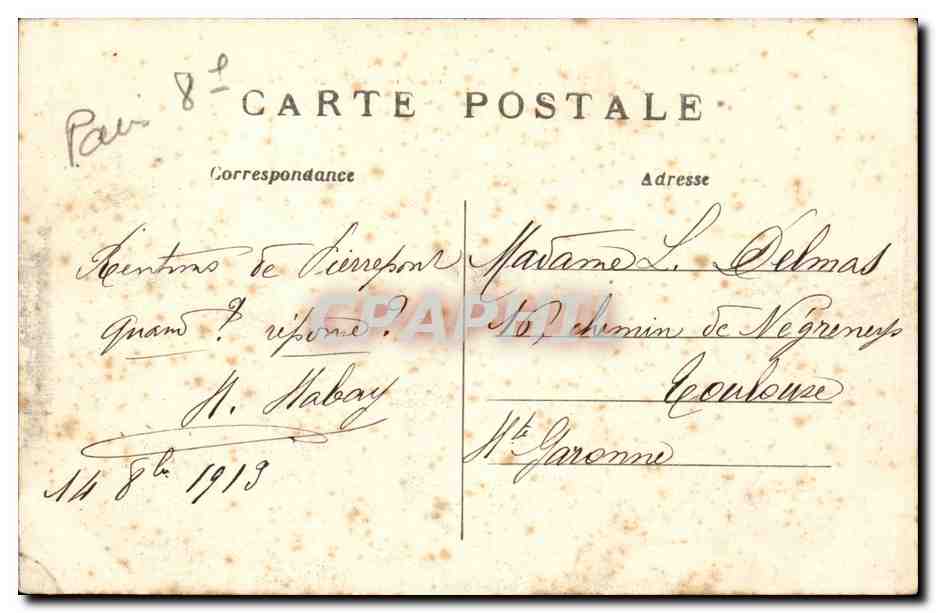 Paris 8f
CARTE POSTALE
Correspondance
Adresse
Rentrons de Pierrepont
Quand ? réponse ?
H. Habay
14 8bre 1913
Madame L. Delmas
16, chemin de Négreneys
Toulouse
Hte Garonne
CPAPHIL